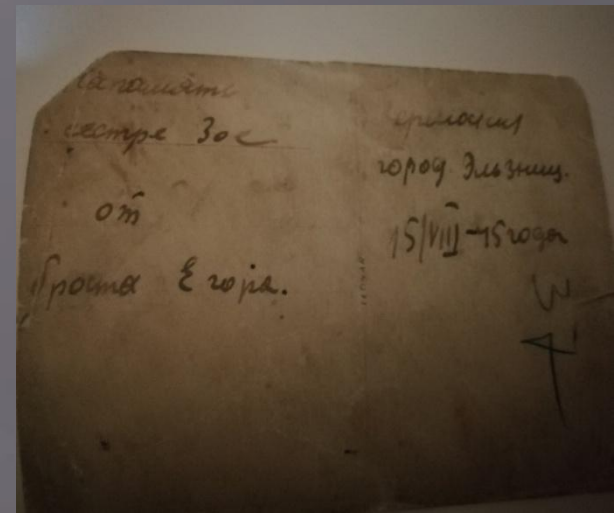 На память
сестре Зое
от
брата Егора.
Германия
город Эльзниц.
15/VIII-45 года